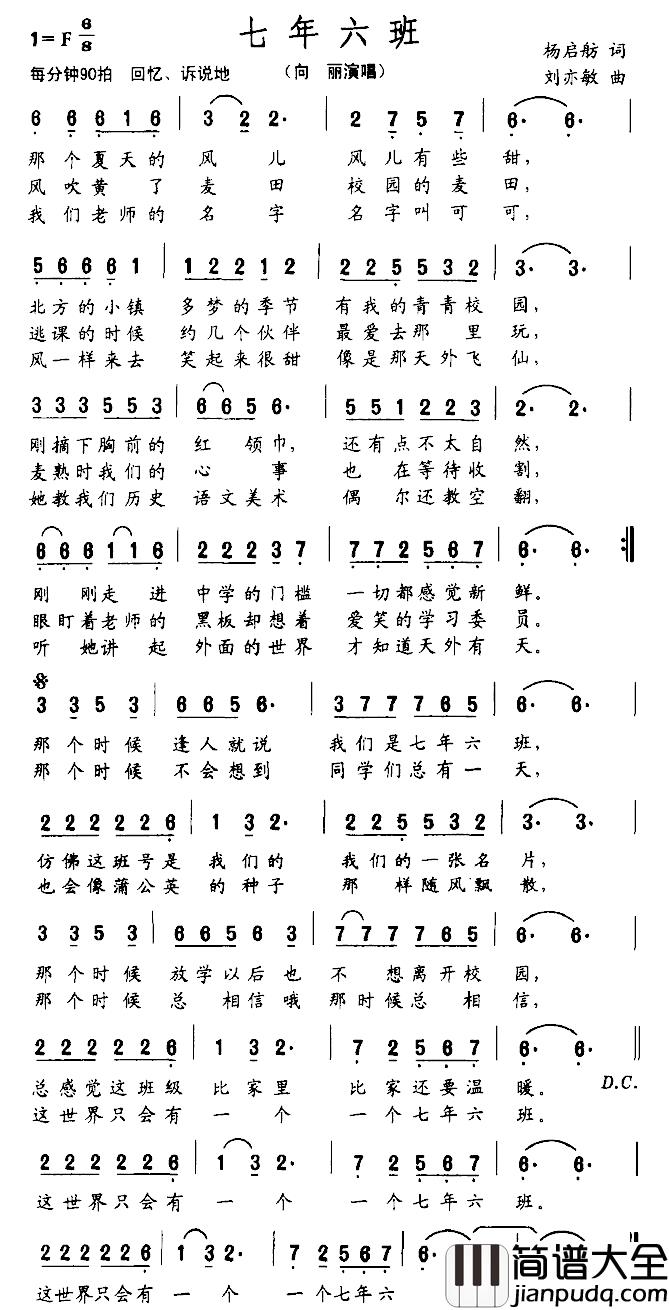 七年六班
1=F 6/8
杨启舫 词
每分钟90拍 回忆、诉说地
（向 丽演唱）
刘亦敏 曲
6 6 6 1 6 | 3 2 2· | 2 7 5 7 | 6· 6· |
那个夏天的 风 儿 风儿有些 甜，
风吹黄了 麦 田 校园的麦 田，
我们老师的 名 字 名字叫可 可，
5 6 6 6 1 | 2 1 2 2 1 2 | 2 2 5 5 3 2 | 3· 3· |
北方的小镇 多梦的季节 有我的青青校 园，
逃课的时候 约几个伙伴 最爱去那 里 玩，
风一样来去 笑起来很甜 像是那天外飞 仙，
3 3 3 5 5 3 | 6 6 5 6· | 5 5 1 2 2 3 | 2· 2· |
刚摘下胸前的 红 领巾， 还有点不太自 然，
麦熟时我们的 心 事 也 在等待收 割，
她教我们历史 语文美术 偶 尔还教空 翻，
6 6 6 1 1 6 | 2 2 2 2 3 7 | 7 7 2 5 6 7 | 6· 6· :‖
刚 刚走 进 中学的门槛 一切都感觉新 鲜。
眼盯着老师的 黑板却想着 爱笑的学习委 员。
听 她讲 起 外面的世界 才知道天外有 天。
𝄋
3 3 5 3 | 6 6 5 6· | 3 7 7 7 6 5 | 6· 6· |
那个时候 逢人就说 我们是七年六 班，
那个时候 不会想到 同学们总有一 天，
2 2 2 2 2 6 | 1 3 2· | 2 2 5 5 3 2 | 3· 3· |
仿佛这班号是 我们的 我们的一张名 片，
也会像蒲公英 的种子 那 样随风飘 散，
3 3 5 3 | 6 6 5 6 3 | 7 7 7 7 6 5 | 6· 6· |
那个时候 放学以后也 不 想离开校 园，
那个时候 总 相信哦 那时候总 相 信，
2 2 2 2 2 6 | 1 3 2· | 7 2 5 6 7 | 6· 6· ‖
总感觉这班级 比家里 比家还要温 暖。 D.C.
这世界只会有 一 个 一个七年六 班。
2 2 2 2 2 6 | 1 3 2· | 7 2 5 6 7 | 6· 6· |
这世界只会有 一 个 一个七年六 班。
2 2 2 2 2 6 | 1 3 2· | 7 2 5 6 7 | 6·
这世界只会有 一 个 一个七年六
简谱大全
jianpudq.com